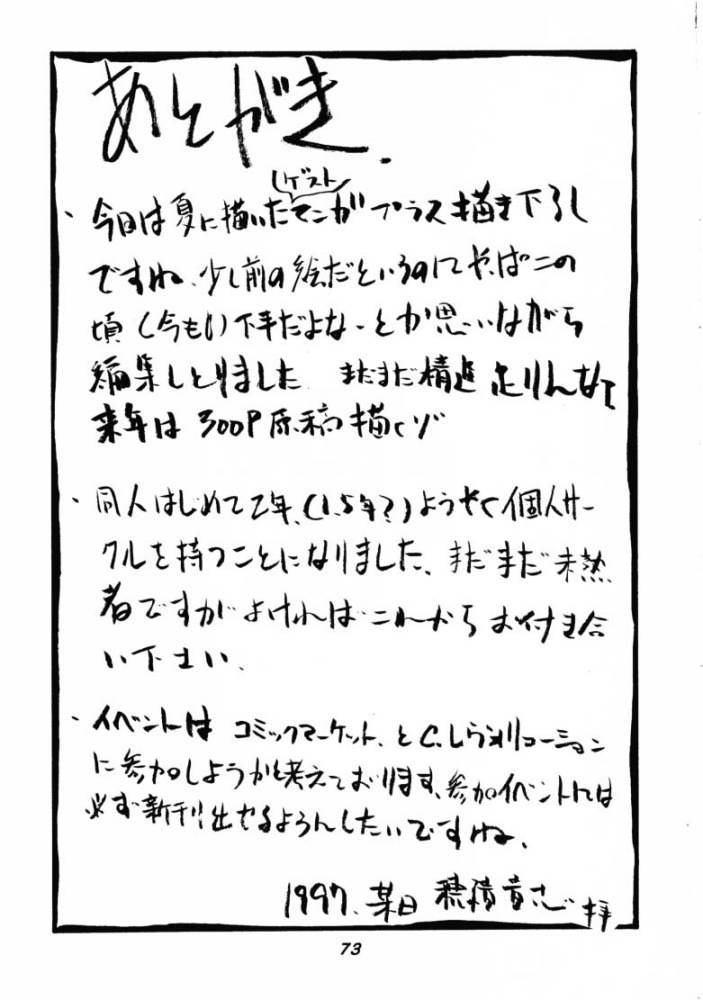 あとがき.
(ゲスト)
・今日は夏に描いたマンガプラス描き下ろし
ですね、少し前の絵だというのにやっぱこの
頃(今も)下手だよな-とか思いながら
編集しとりました まだまだ精進足りんなって
来年は300P原稿描くゾ
・同人はじめて2年、(1.5年?)ようやく個人サー
クルを持つことになりました、まだまだ未熟
者ですがよければこれからお付き合
い下さい、
・イベントは コミックマーケット、とC.レヴォリューション
に参加しようかと考えております、参加イベントには
必ず新刊出せるようにしたいですね、
1997、某日 穂積貴志 拝
73